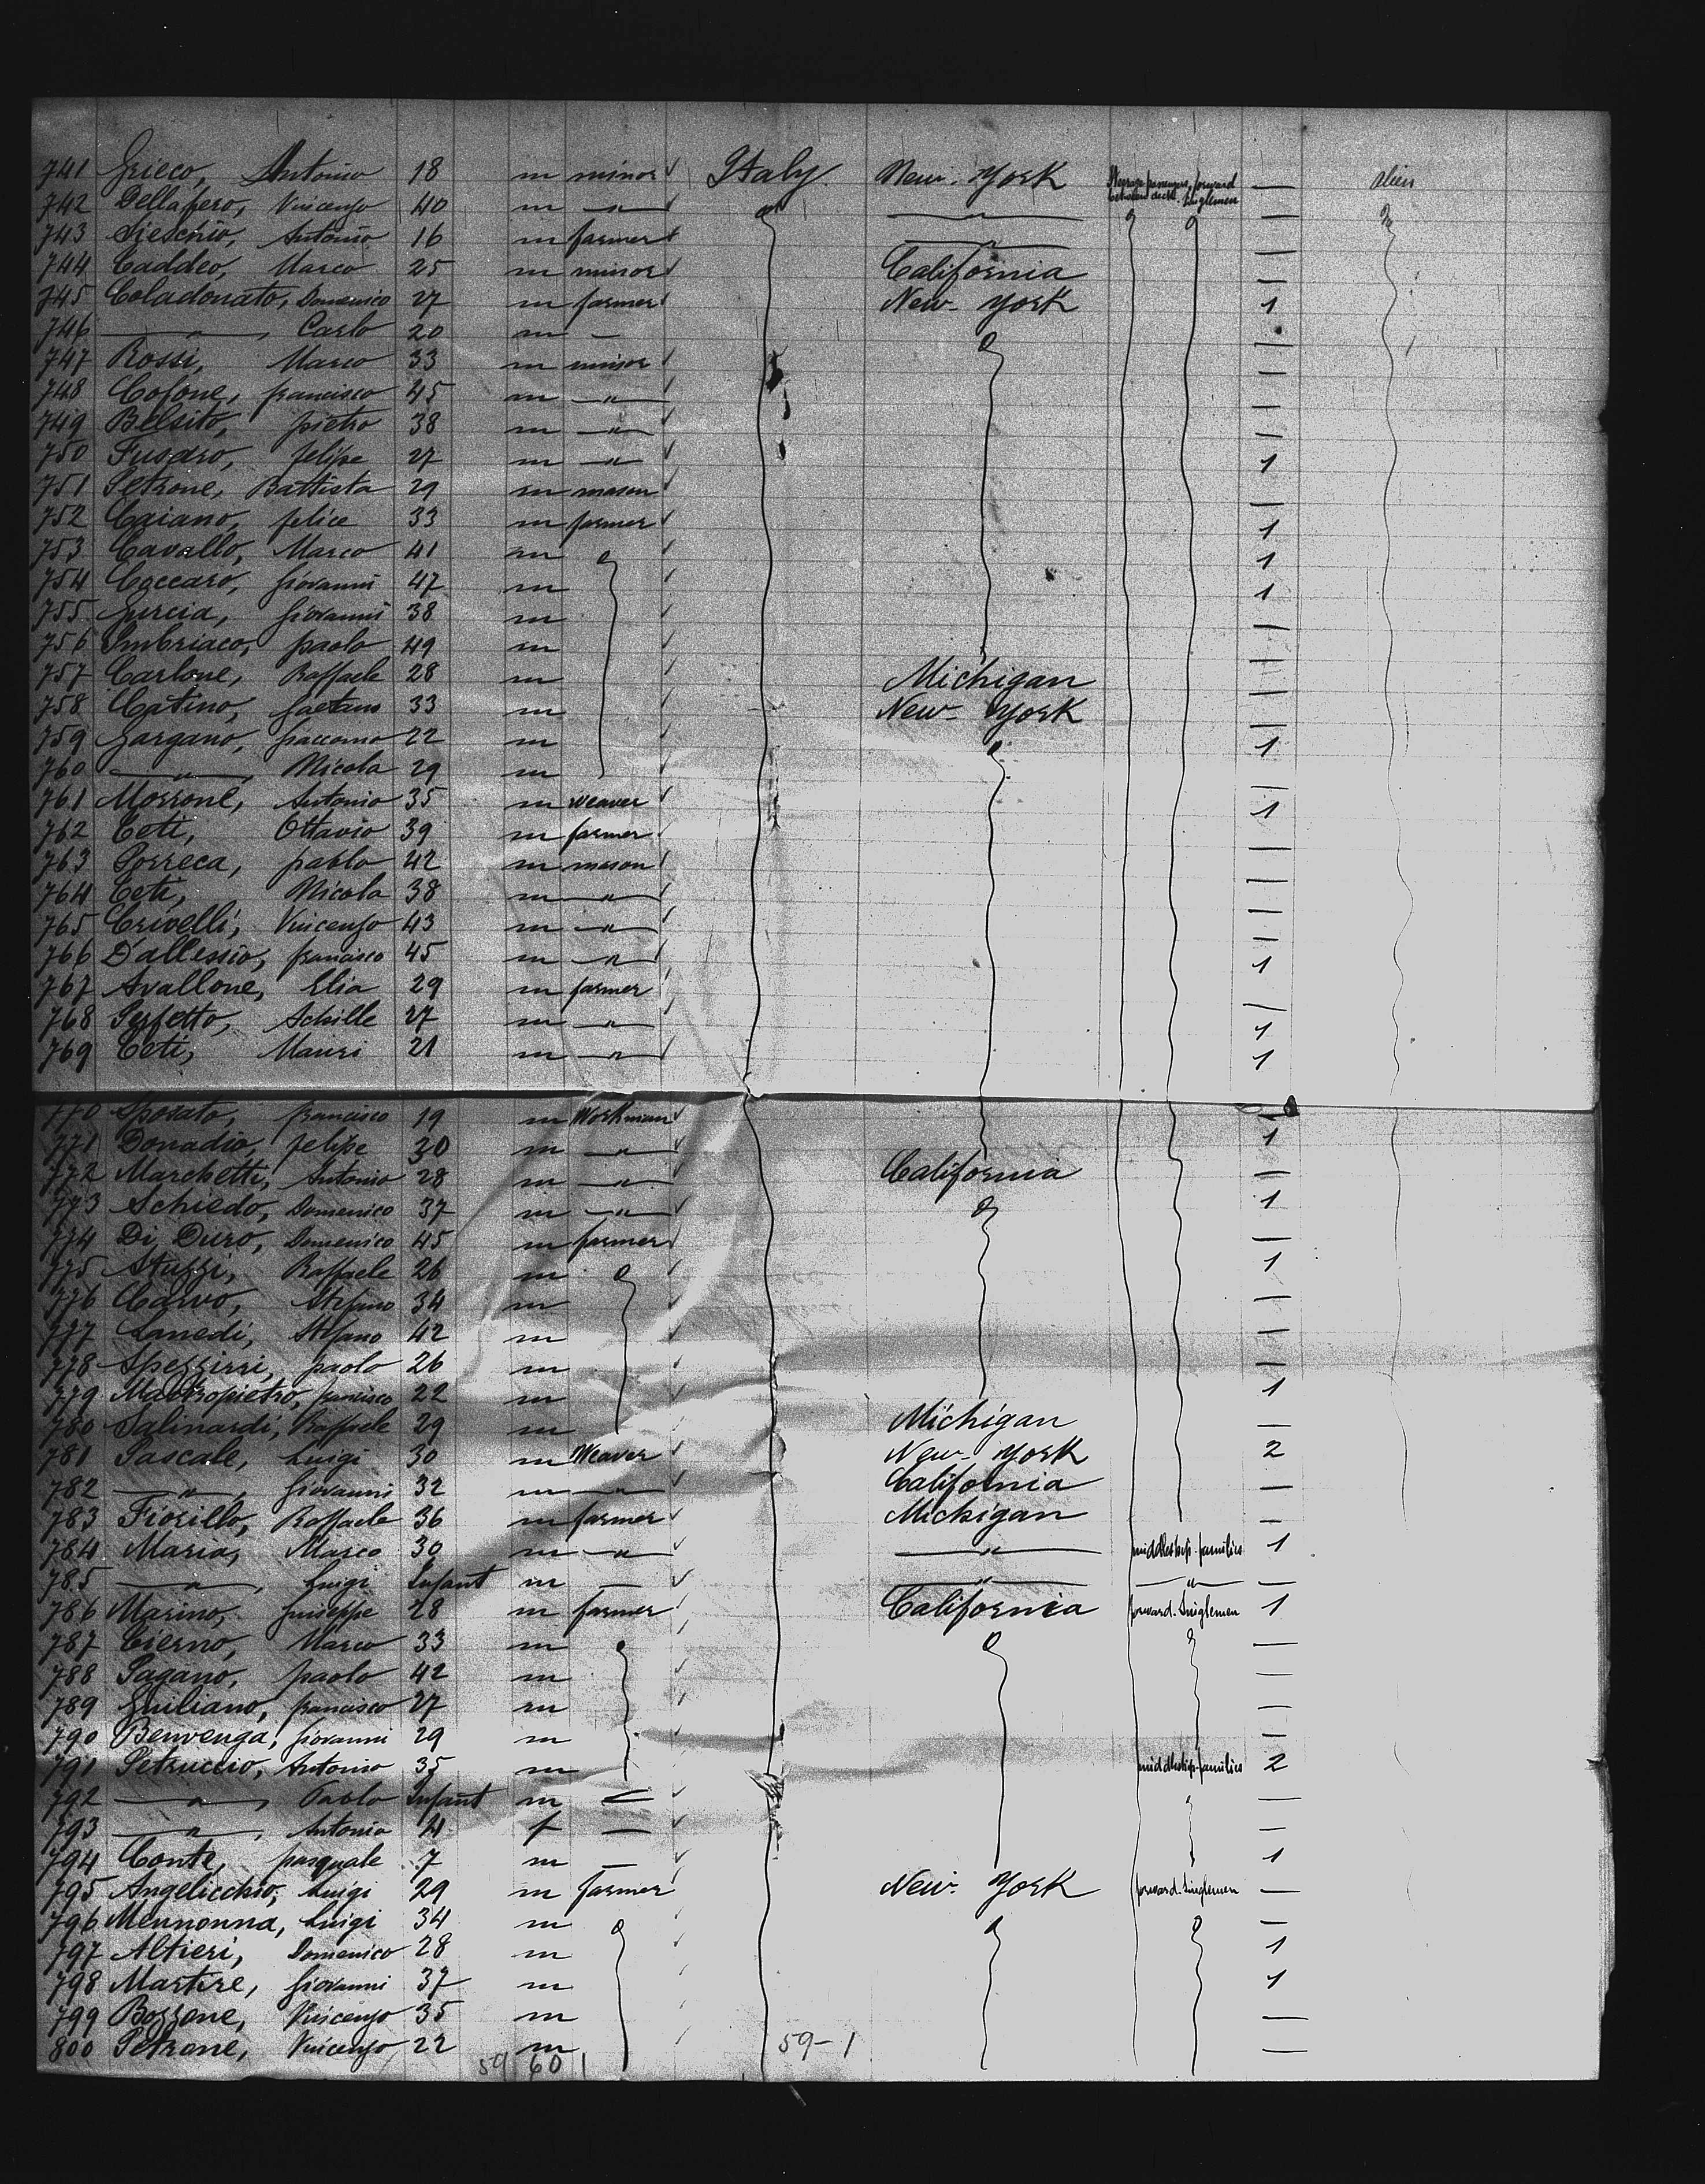 741 Grieco, Antonio 18 m minor Italy New-York Steerage passengers, forward between deck. Singlemen — alien
742 Dellafero, Vincenzo 40 m —"— —"— —
743 Antonio 16 m farmer —"— —
744 Caddeo, Marco 25 m minor California —
745 Coladonato, Domenico 27 m farmer New-York 1
746 —"—, Carlo 20 m —
747 Rossi, Marco 33 m minor —
748 Cofone, francisco 45 m —"— —
749 Belsito, pietro 38 m —"— —
750 felipe 27 m —"— 1
751 Petrone, Battista 29 m mason —
752 Caiano, felice 33 m farmer 1
753 Cavallo, Marco 41 m 1
754 Caccaro, Giovanni 47 m 1
755 Giovanni 38 m —
756 Imbriaco, paolo 49 m —
757 Carlone, Raffaele 28 m Michigan —
758 Catino, Gaetano 33 m New-York —
759 Gargano, Giaccomo 22 m 1
760 —"—, Nicola 29 m —
761 Morrone, Antonio 35 m weaver 1
762 Ceti, Ottavio 39 m farmer —
763 Porreca, pablo 42 m mason —
764 Ceti, Nicola 38 m —"— —
765 Crivelli, Vincenzo 43 m —"— —
766 D'allessio, francisco 45 m —"— 1
767 Avallone, Elia 29 m farmer —
768 Perfetto, Achille 27 m —"— 1
769 Ceti, Mauri 21 m —"— 1
770 Sposato, francisco 19 m Workman —
771 Bonadio, felipe 30 m —"— 1
772 Marchetti, Antonio 28 m —"— California —
773 Schiedo, Domenico 37 m —"— 1
774 Di Duro, Domenico 45 m farmer —
775 Stuzzi, Raffaele 26 m 1
776 Carvo, Stefano 34 m —
777 Lanedi, Stefano 42 m —
778 Spezzirri, paolo 26 m —
779 Mastropietro, francisco 22 m 1
780 Salinardi, Raffaele 29 m Michigan —
781 Pascale, Luigi 30 m Weaver New-York 2
782 —"—, Giovanni 32 m —"— California —
783 Fiorillo, Raffaele 36 m farmer Michigan
784 Maria, Marco 30 m —"— —"— middleship-families 1
785 —"—, Luigi Infant m — —"— —"— —
786 Marino, Guiseppe 28 m farmer California forward-Singlemen 1
787 Cierno, Marco 33 m —
788 Pagano, paolo 42 m —
789 Guiliano, francisco 27 m —
790 Benvenga, Giovanni 29 m —
791 Petruccio, Antonio 35 m middleship-families 2
792 —"—, Pablo Infant m — —
793 —"—, Antonia 4 f — —
794 Conte, pasquale 7 m — 1
795 Angelicchio, Luigi 29 m farmer New-York forward-Singlemen —
796 Mennonna, Luigi 34 m —
797 Altieri, Domenico 28 m 1
798 Martire, Giovanni 37 m 1
799 Bozzone, Vincenzo 35 m —
800 Petrone, Vincenzo 22 m —
59 60 1 59-1